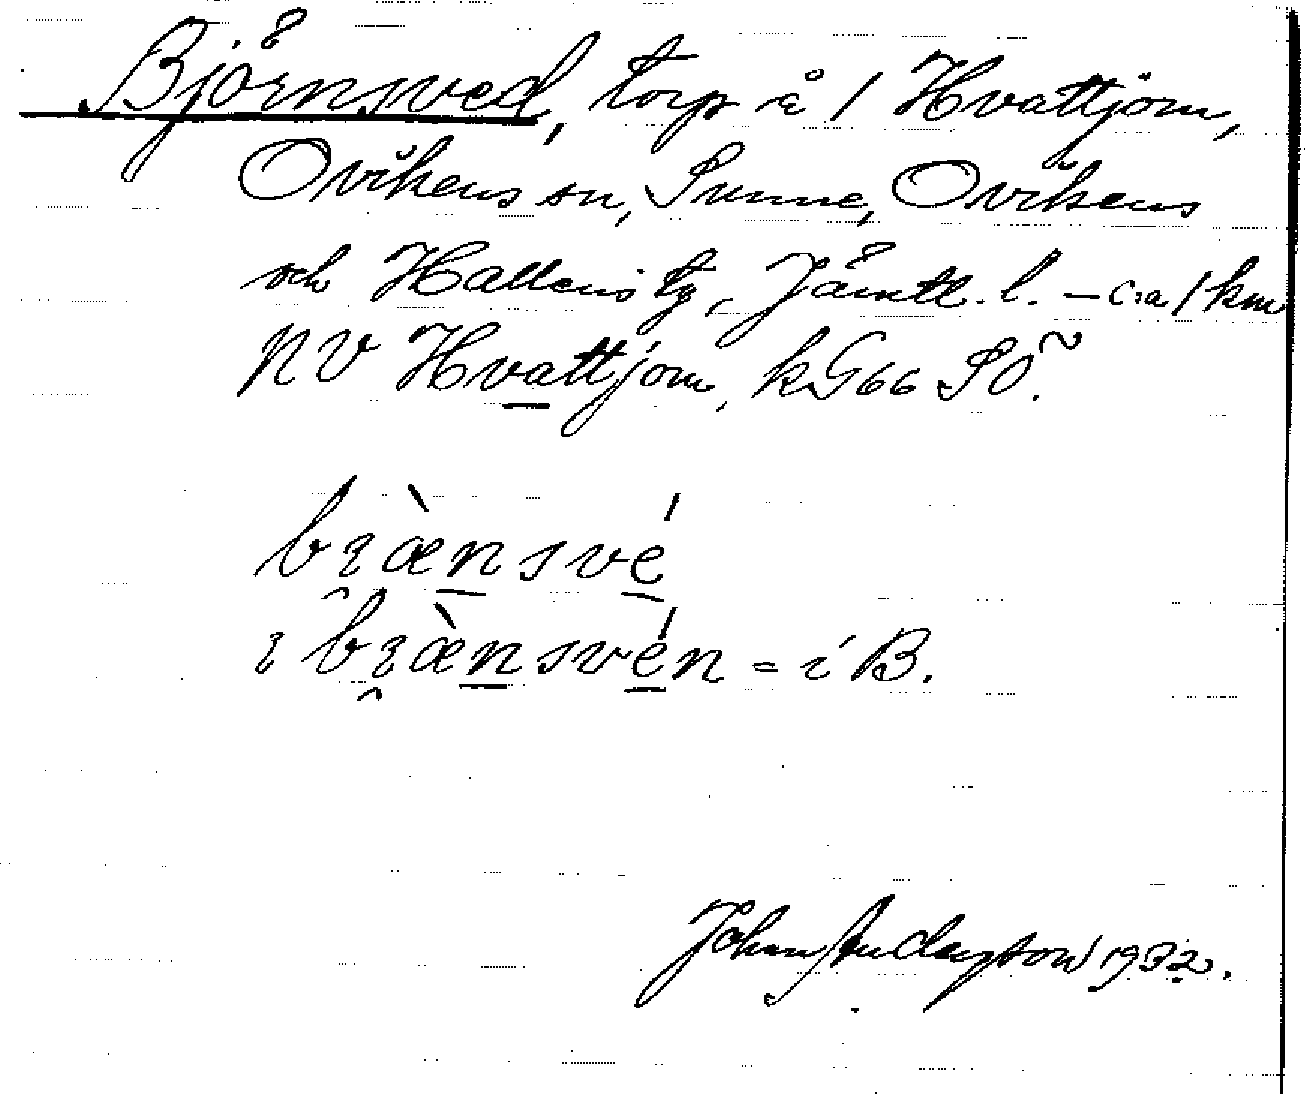 Björnsved, torp å 1 Hvattjom,
Ovikens sn, Sunne, Ovikens
och Hallens tg, Jämtl. l. – c:a 1 km
NV Hvattjom, kG66 SO.
bræ̀nsvé
ɩ bræ̀nsvén = i B.
Johan Anderson 1932.